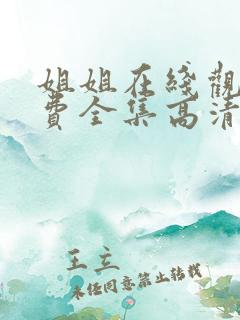 姐姐在綫觀
費全集高清
王立
未经同意禁止转载